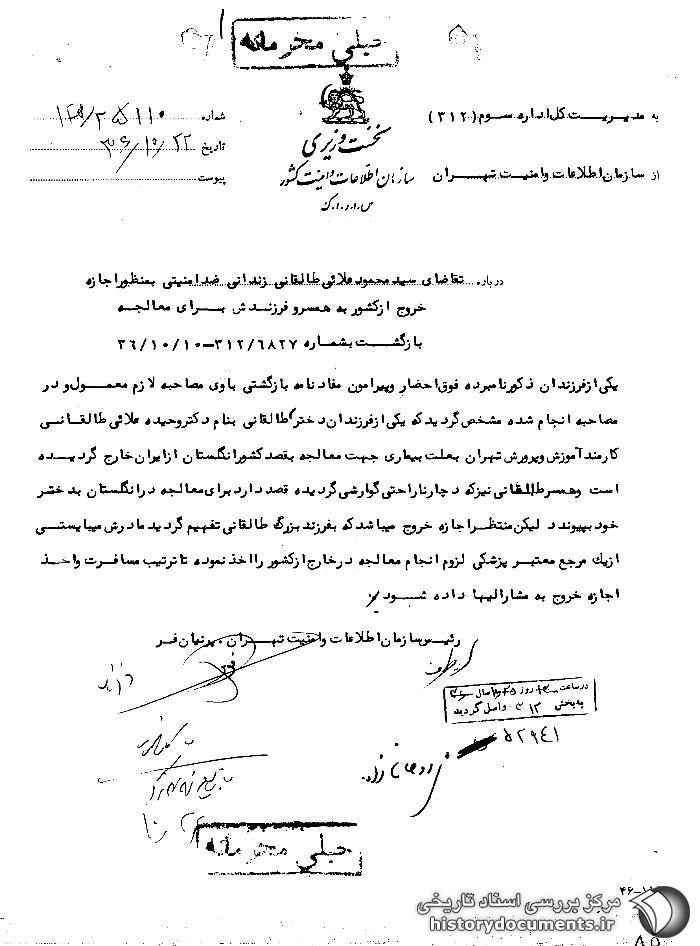 خیلی محرمانه
به مدیریت کل اداره سوم (۳۱۲)
از سازمان اطلاعات و امنیت تهران
نخست وزیری
سازمان اطلاعات و امنیت کشور
س.ا.و.ا.ک
شماره ۲۵۱۱۰
تاریخ ۳۶/۱۰/۲۲
پیوست
درباره تقاضای سید محمود علائی طالقانی زندانی ضد امنیتی بمنظور اجازه
خروج از کشور به همسر و فرزندش برای معالجه
بازگشت بشماره ۳۱۲/۶۸۲۷-۳۶/۱۰/۱۰
یکی از فرزندان ذکور نامبرده فوق احضار و پیرامون مفاد نامه بازگشتی با وی مصاحبه لازم معمول و در
مصاحبه انجام شده مشخص گردید که یکی از فرزندان دختر طالقانی بنام دکتر وحیده علائی طالقانی
کارمند آموزش و پرورش تهران بعلت بیماری جهت معالجه بقصد کشور انگلستان از ایران خارج گردیده
است و همسر طالقانی نیز که دچار ناراحتی گوارشی گردیده قصد دارد برای معالجه در انگلستان به دختر
خود بپیوندد لیکن منتظر اجازه خروج میباشد که بفرزند بزرگ طالقانی تفهیم گردید مادرش میبایستی
از یک مرجع معتبر پزشکی لزوم انجام معالجه در خارج از کشور را اخذ نموده تا ترتیب مسافرت و اخذ
اجازه خروج به مشارالیها داده شود
رئیس سازمان اطلاعات و امنیت تهران. پرنیان فر
در ساعت روز سال ۳۶
به بخش ۳۱۲ واصل گردید
۵۲۹۴۱
خیلی محرمانه
مرکز بررسی اسناد تاریخی
historydocuments.ir